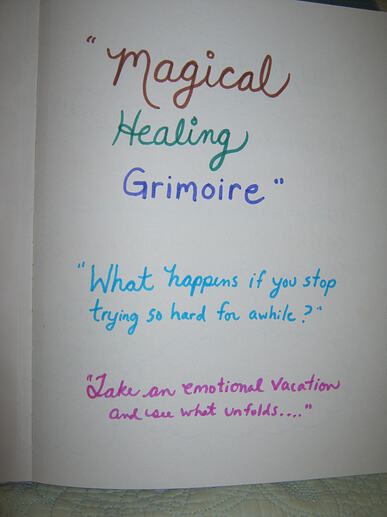 "Magical
Healing
Grimoire"
"What happens if you stop
trying so hard for awhile?"
"Take an emotional vacation
and see what unfolds...."